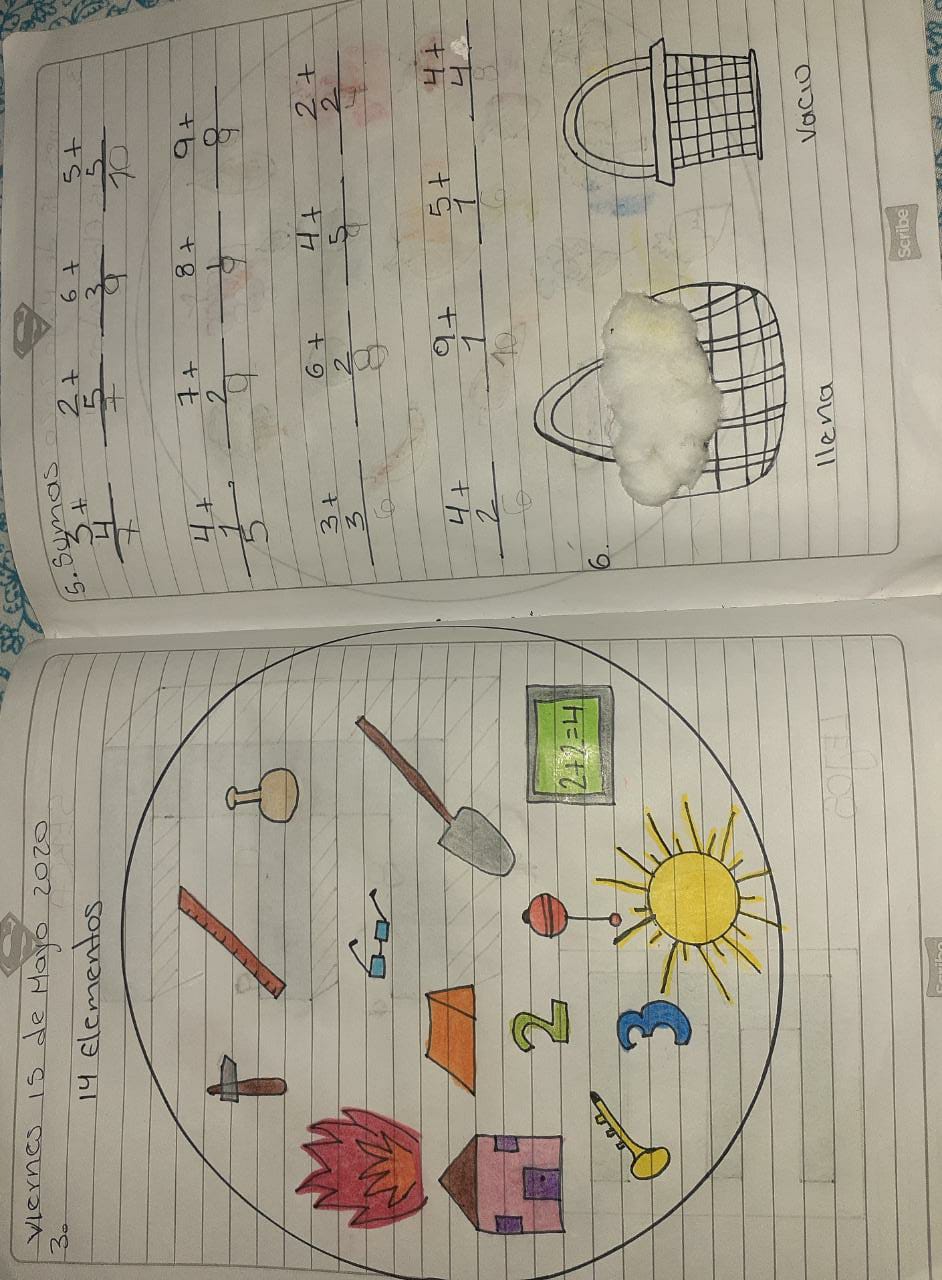 Viernes 15 de Mayo 2020
3.
14 Elementos
2+2=4
2
3
5. Sumas
3+ 2+ 6+ 5+
4 5 3 5
7 7 9 10
4+ 7+ 8+ 9+
1 2 1 0
5 9 9 9
3+ 6+ 4+ 2+
3 2 5 2
6 8 9 4
4+ 9+ 5+ 4+
2 1 1 4
6 10 6 8
6.
llena vacio
Scribe